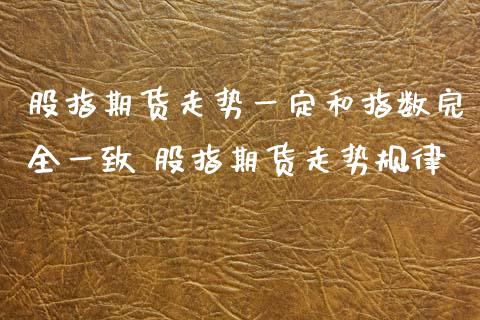 股指期货走势一定和指数完
全一致 股指期货走势规律